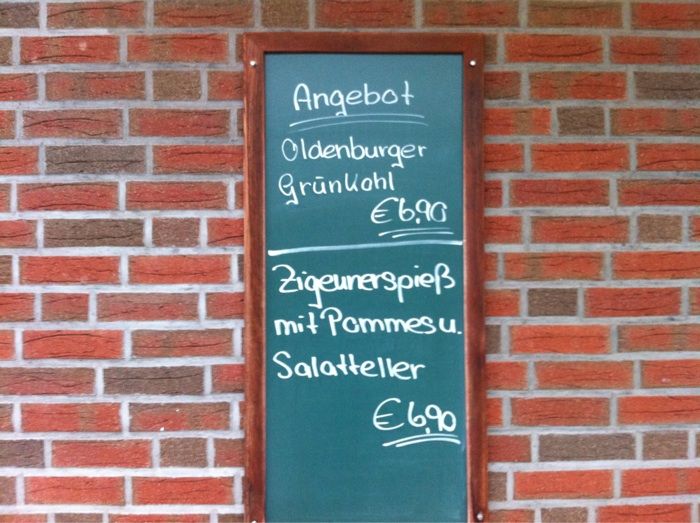 Angebot
Oldenburger
Grünkohl
€6,90
Zigeunerspieß
mit Pommes u.
Salatteller
€6,90